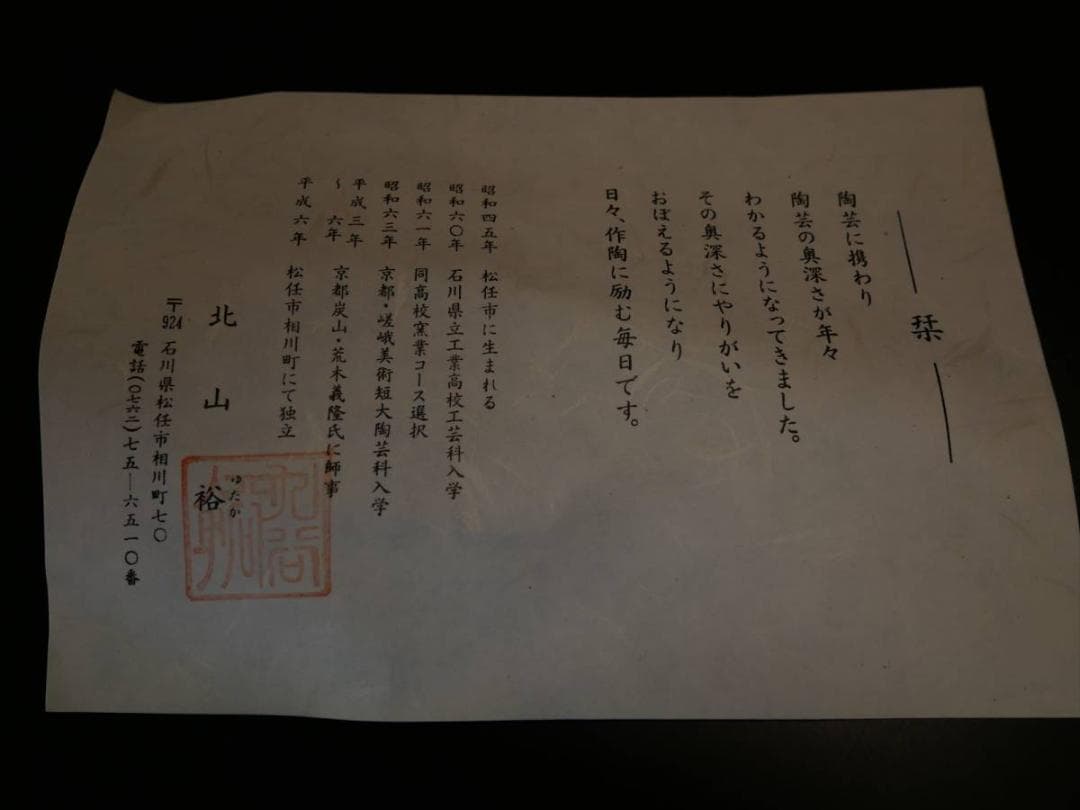 栞
陶芸に携わり
陶芸の奥深さが年々
わかるようになってきました。
その奥深さにやりがいを
おぼえるようになり
日々、作陶に励む毎日です。
昭和四五年 松任市に生まれる
昭和六〇年 石川県立工業高校工芸科入学
昭和六一年 同高校窯業コース選択
昭和六三年 京都・嵯峨美術短大陶芸科入学
平成三年
〜六年 京都炭山・荒木義隆氏に師事
平成六年 松任市相川町にて独立
北山裕
ゆたか
〒924 石川県松任市相川町七〇
電話(〇七六二)七五―六五一〇番